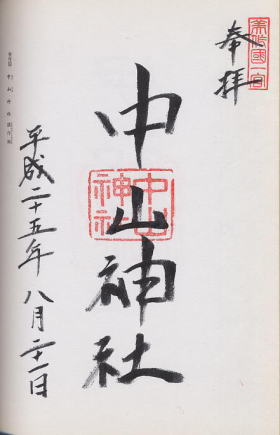 美作國一宮
奉拝
中山神社
中山
神社
平成二十五年八月二十一日